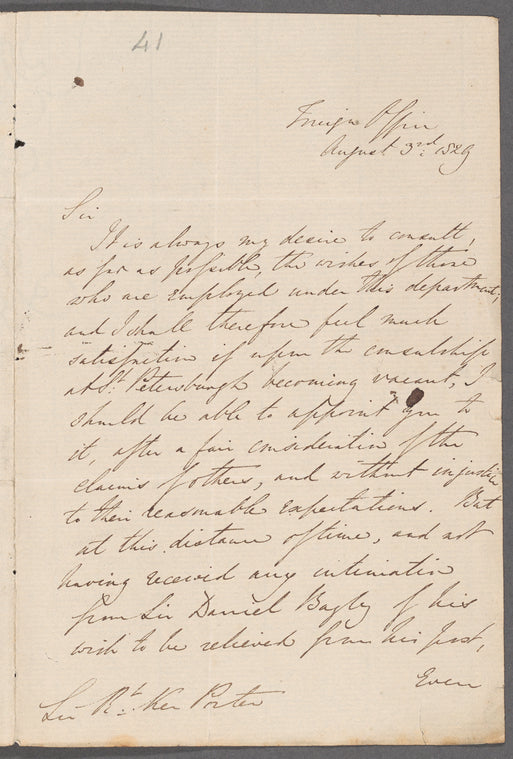 41
Foreign Office
August 3rd: 1829
Sir
It is always my desire to consult,
as far as possible, the wishes of those
who are employed under this department,
and I shall therefore feel much
satisfaction if upon the consulship
at St. Petersburgh becoming vacant, I
should be able to appoint you to
it, after a fair consideration of the
claims of others, and without injustice
to their reasonable expectations. But
at this distance of time, and not
having received any intimation
from Sir Daniel Bayley of his
wish to be relieved from his post,
Even
Sir Rt. Ker Porter